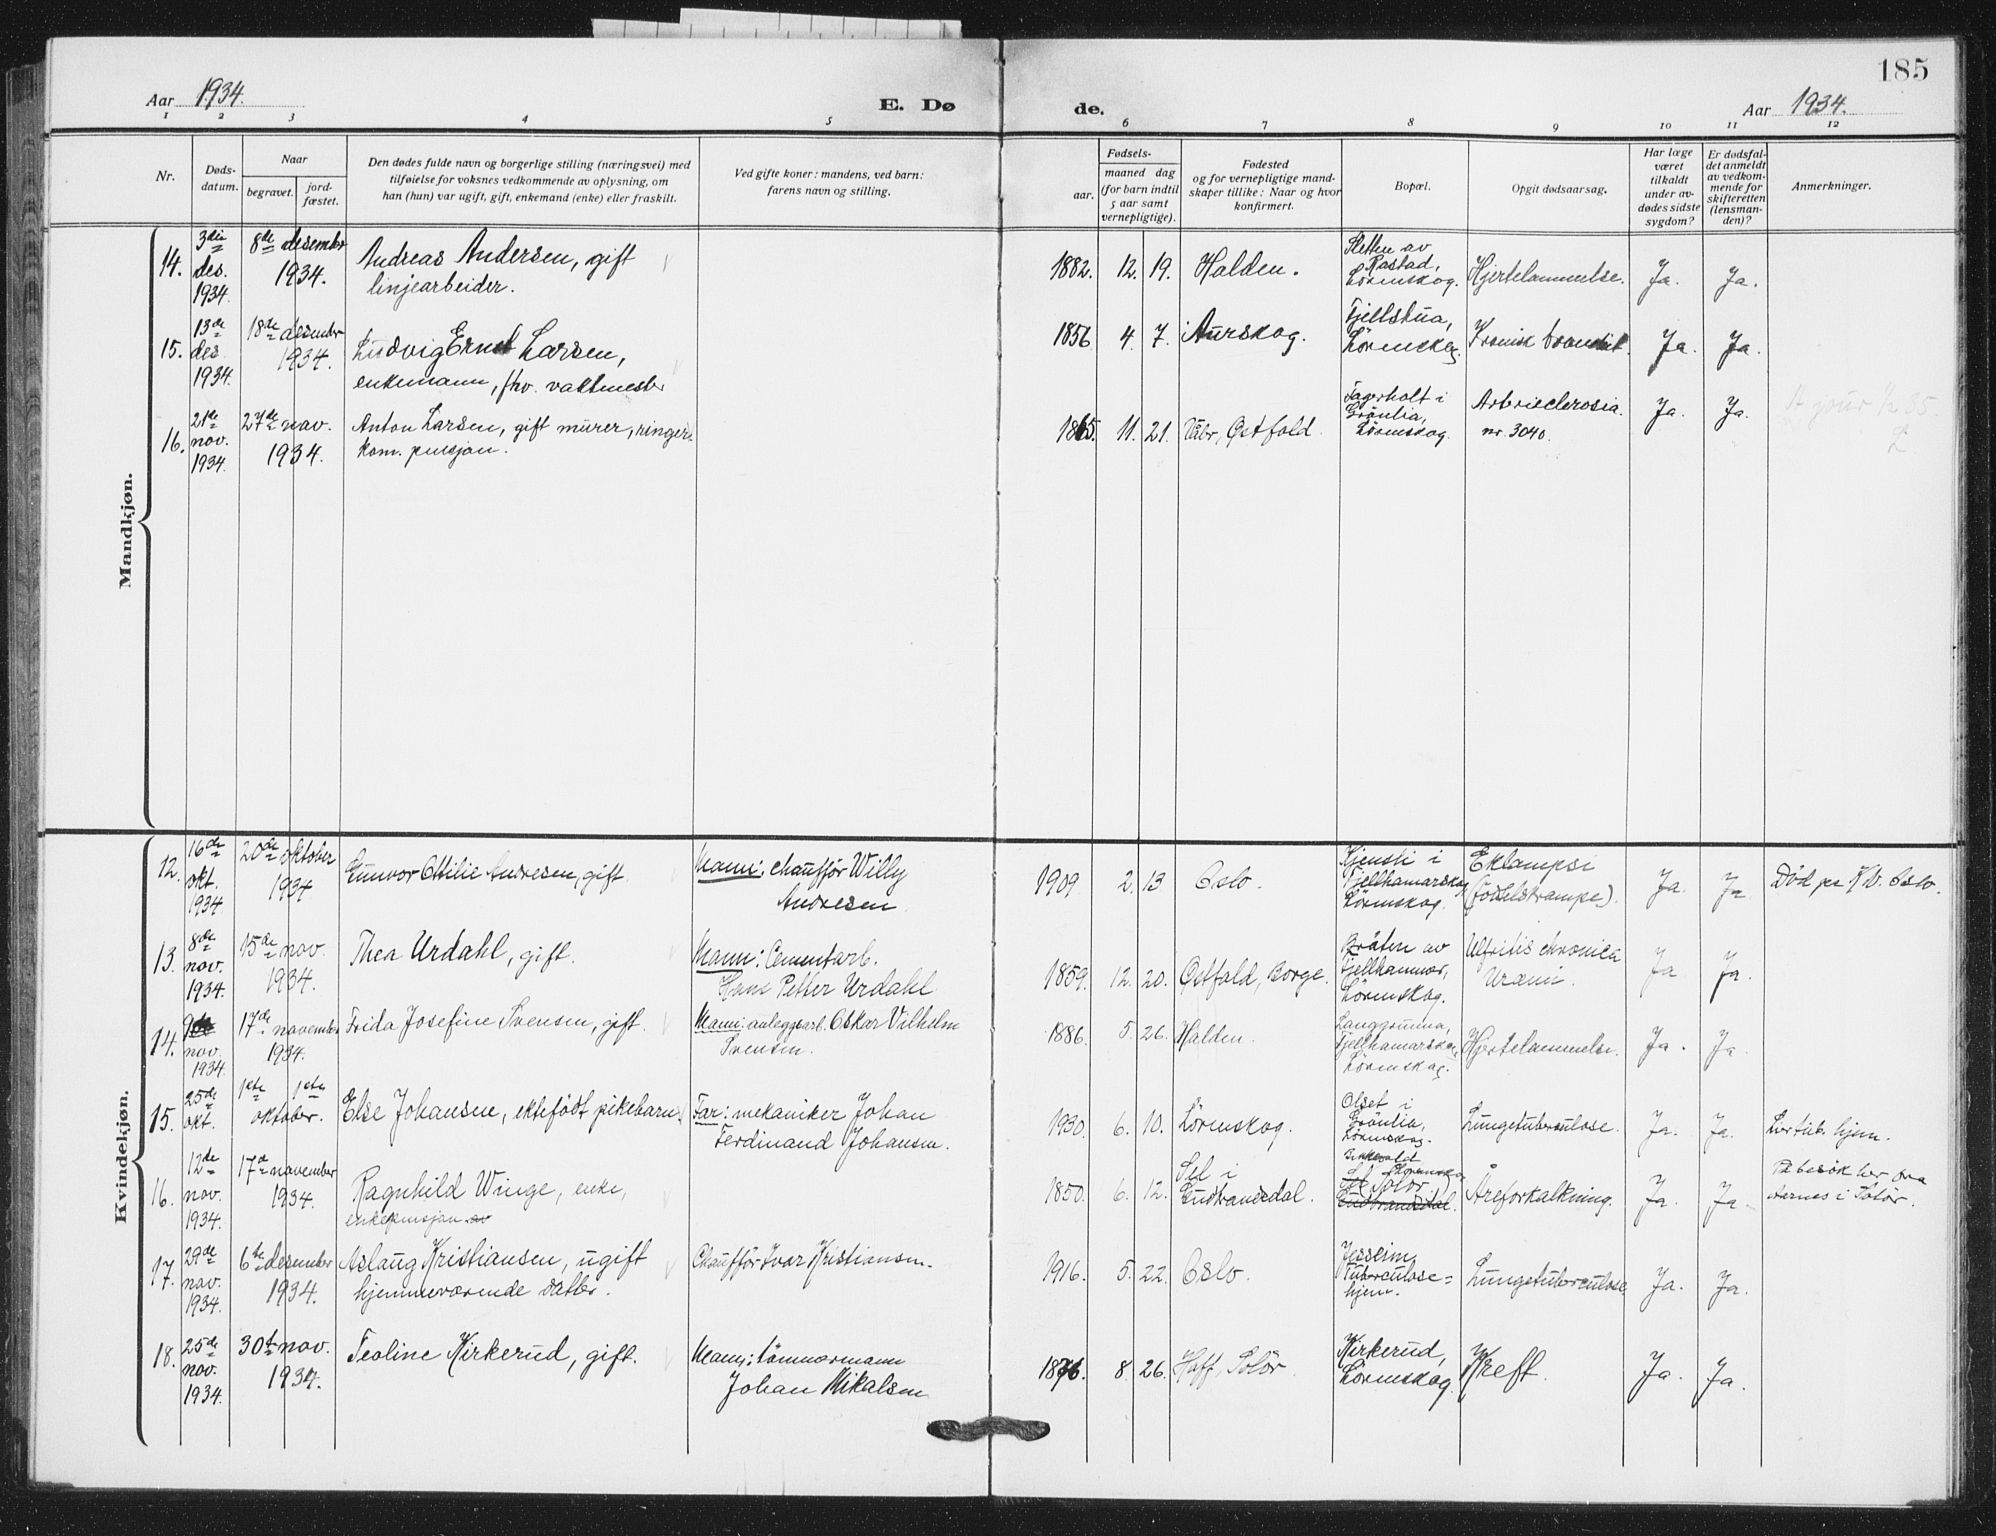 185
Aar 1934.
E. Døde.
Aar 1934.
1 2 3 4 5 6 7 8 9 10 11 12
Nr.
Døds-
datum.
Naar
begravet.
jord-
fæstet.
Den dødes fulde navn og borgerlige stilling (næringsvei) med
tilføielse for voksnes vedkommende av oplysning, om
han (hun) var ugift, gift, enkemand (enke) eller fraskilt.
Ved gifte koner: mandens, ved barn:
farens navn og stilling.
Fødsels-
aar.
maaned dag
(for barn indtil
5 aar samt
vernepligtige).
Fødested
og for vernepligtige mand-
skaper tillike: Naar og hvor
konfirmert.
Bopæl.
Opgit dødsaarsag.
Har læge
været
tilkaldt
under av-
dødes sidste
sygdom?
Er dødsfal-
det anmeldt
av vedkom-
mende for
skifteretten
(lensman-
den)?
Anmerkninger.
Mandkjøn.
14.
3die
des.
1934.
8de desember
1934.
Andreas Andersen, gift
linjearbeider.
1882. 12. 19.
Halden.
Sletten av
Rastad,
Lörenskog.
Hjertelammelse.
Ja.
Ja.
15.
13de
des.
1934.
18de desember
1934.
Ludvig Ernst Larsen,
enkemann, fhv. vaktmester
1856 4. 7.
Aurskog.
Fjellstua,
Lörenskog.
Kronisk bronkit.
Ja.
Ja.
16.
21de
nov.
1934.
27de nov.
1934.
Anton Larsen, gift murer, ringer.
kom. pensjon.
1865. 11. 21.
Våler, Østfold.
Fagerholt i
Grönlia,
Lörenskog.
Arteriesclerosia.
nr. 3040.
Ja.
Ja.
A jour 1/2 35.
Kvindekjøn.
12.
16de
okt.
1934
20de oktober
1934
Gunvor Ottilie Andresen, gift.
Mann: chaufför Willy
Andresen
1909. 2. 13
Oslo.
Kjensli i
Fjellhamarskog
Lörenskog.
Eklampsi
(födselskrampe).
Ja.
Ja
Död på Kv. Oslo.
13.
8de
nov.
1934.
15de nov.
1934.
Thea Urdahl, gift.
Mann: Cementarb.
Hans Petter Urdahl
1859. 12. 20.
Østfold, Borge.
Bråten av
Fjellhammer,
Lörenskog.
chronica
Urämi.
Ja
Ja.
14.
9de
nov.
1934.
17de november
1934.
Frida Josefine Svensen, gift.
Mann: anleggsarb. Oskar Vilhelm
Svensen.
1886. 5. 26.
Halden.
Langgrunna,
Fjellhamarskog,
Lörenskog.
Hjertelammelse.
Ja.
Ja.
15.
25de
okt.
1ste 1ste
oktober.
Else Johansen, ektefödt pikebarn.
Far: mekaniker Johan
Ferdinand Johansen.
1930. 6. 10.
Lörenskog.
Olset i
Grönlia,
Lörenskog.
Lungetuberculose.
Ja.
Ja.
tub. hjem.
16.
12de
nov.
1934.
17de november
1934.
Ragnhild Winge, enke,
enkepensjon av
1850. 6. 12.
Sel i
Gudbrandsdal.
Lörenskog
Sel Solör
Gudbrandsdal.
Åreforkalkning.
Ja.
Ja.
På besök her fra
Aernes i Solör.
17.
29de
nov.
1934.
6te desember
1934.
Aslaug Kristiansen, ugift
hjemmeværende datter.
Chaufför Ivar Kristiansen.
1916. 5. 22.
Oslo.
Jessheim
Tuberculose=
hjem.
Lungetuberculose
Ja.
Ja.
18.
25de
nov.
1934.
30te nov.
1934.
Teoline Kirkerud, gift.
Mann: tömmermann
Johan Mikalsen
1876. 8. 26.
Hoff, Solör.
Kirkerud,
Lörenskog.
Kreft.
Ja.
Ja.